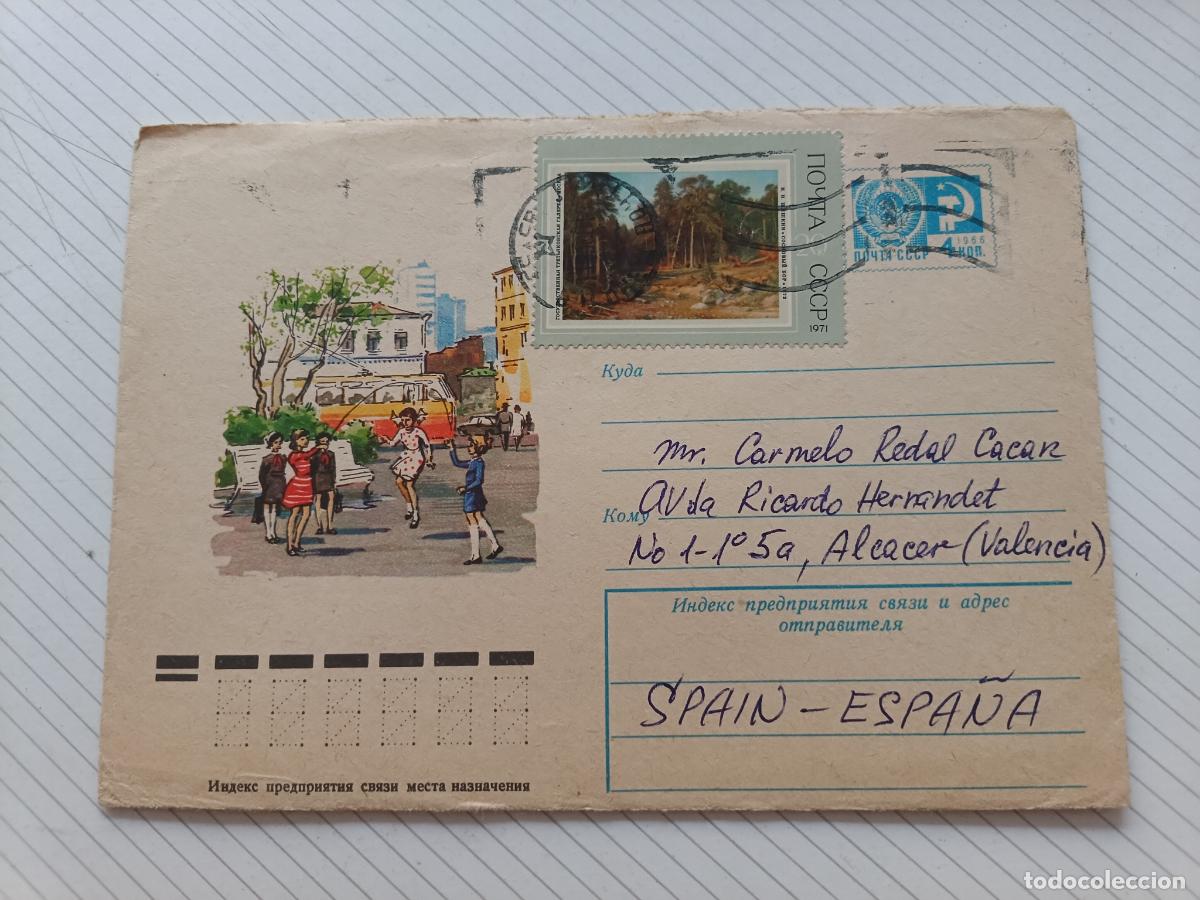 ПОЧТА СССР
1971
ГОСУДАРСТВЕННАЯ ТРЕТЬЯКОВСКАЯ ГАЛЕРЕЯ
1966
ПОЧТА СССР 4 КОП.
Куда
Mr. Carmelo Redal Cacar
Кому AVda Ricardo Hernandet
No 1-1º 5a, Alcacer (Valencia)
Индекс предприятия связи и адрес
отправителя
SPAIN - ESPAÑA
Индекс предприятия связи места назначения
todocoleccion